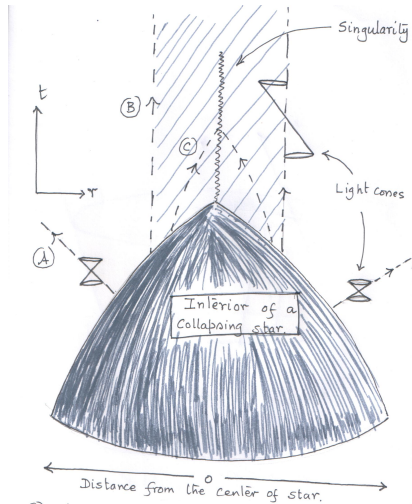 Singularity
t
B
C
r
Light cones
A
Interior of a
Collapsing star.
0
Distance from the center of star.